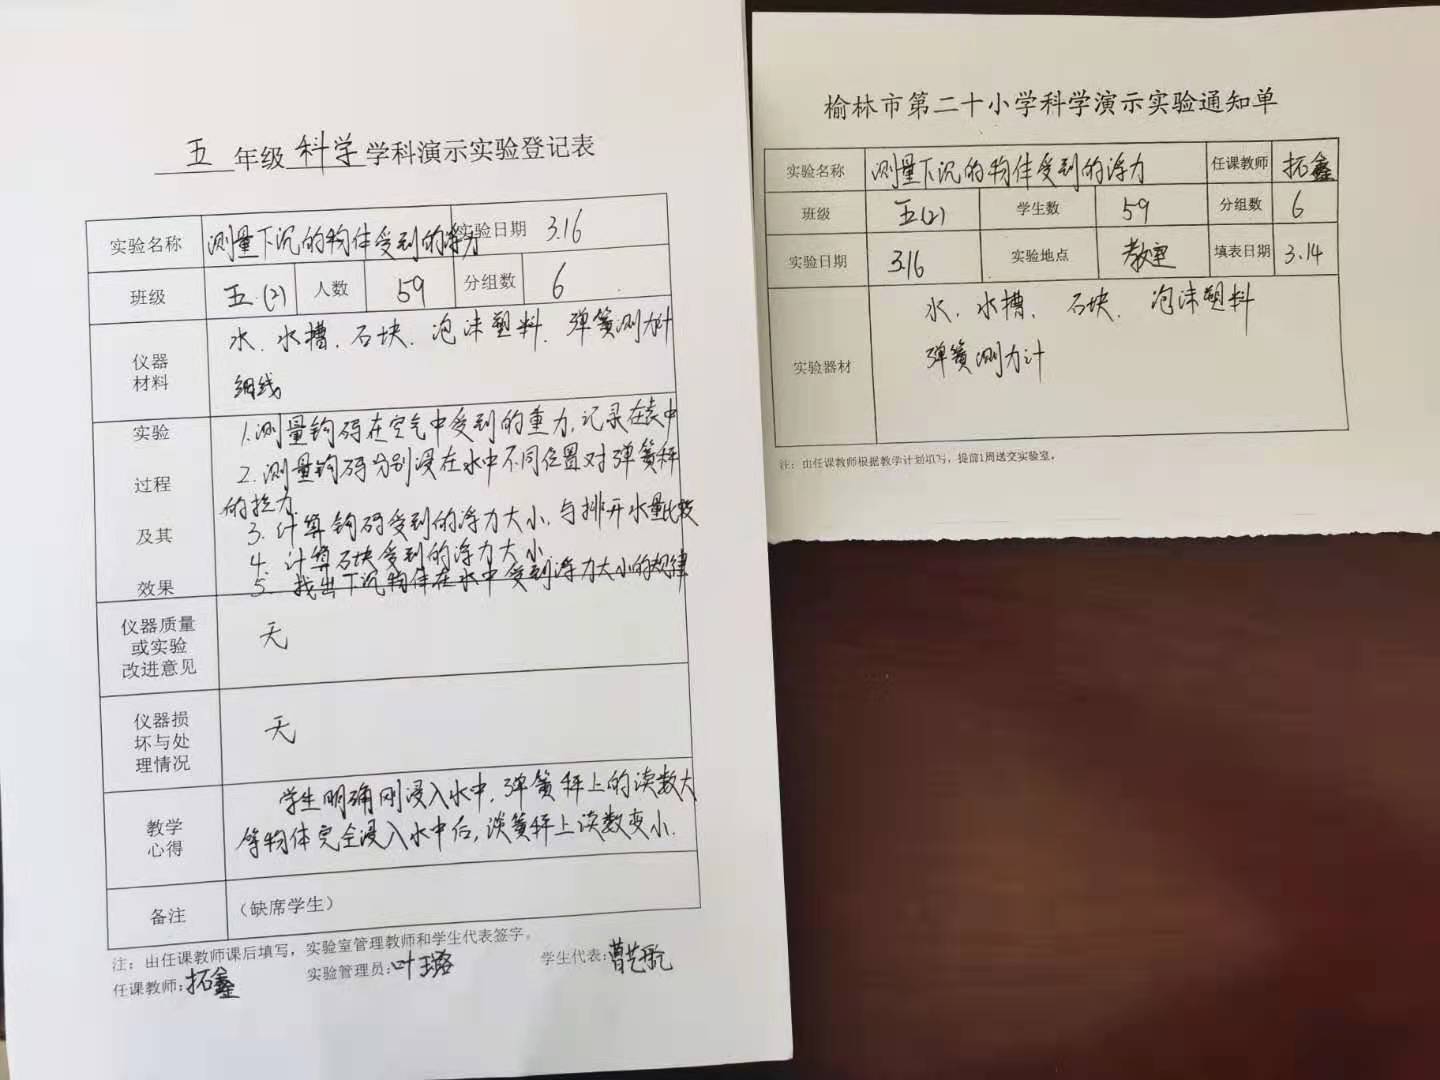 五 年级 科学 学科演示实验登记表
实验名称 测量下沉的物体受到的浮力 实验日期 3.16
班级 五.(2) 人数 59 分组数 6
仪器材料 水、水槽、石块、泡沫塑料、弹簧测力计
细线
实验过程及其效果 1.测量钩码在空气中受到的重力,记录在表中
2.测量钩码分别浸在水中不同位置对弹簧秤
的拉力
3.计算钩码受到的浮力大小,与排开水量比较
4.计算石块受到的浮力大小
5.找出下沉物体在水中受到浮力大小的规律
仪器质量或实验改进意见 无
仪器损坏与处理情况 无
教学心得 学生明确刚浸入水中,弹簧秤上的读数大
等物体完全浸入水中后,淡簧秤上读数变小.
备注 (缺席学生)
注:由任课教师课后填写,实验室管理教师和学生代表签字。
任课教师:拓鑫 实验管理员:叶璐 学生代表:曹艺
榆林市第二十小学科学演示实验通知单
实验名称 测量下沉的物体受到的浮力 任课教师 拓鑫
班级 五(2) 学生数 59 分组数 6
实验日期 3.16 实验地点 教室 填表日期 3.14
实验器材 水、水槽、石块、泡沫塑料
弹簧测力计
注:由任课教师根据教学计划填写,提前1周送交实验室。